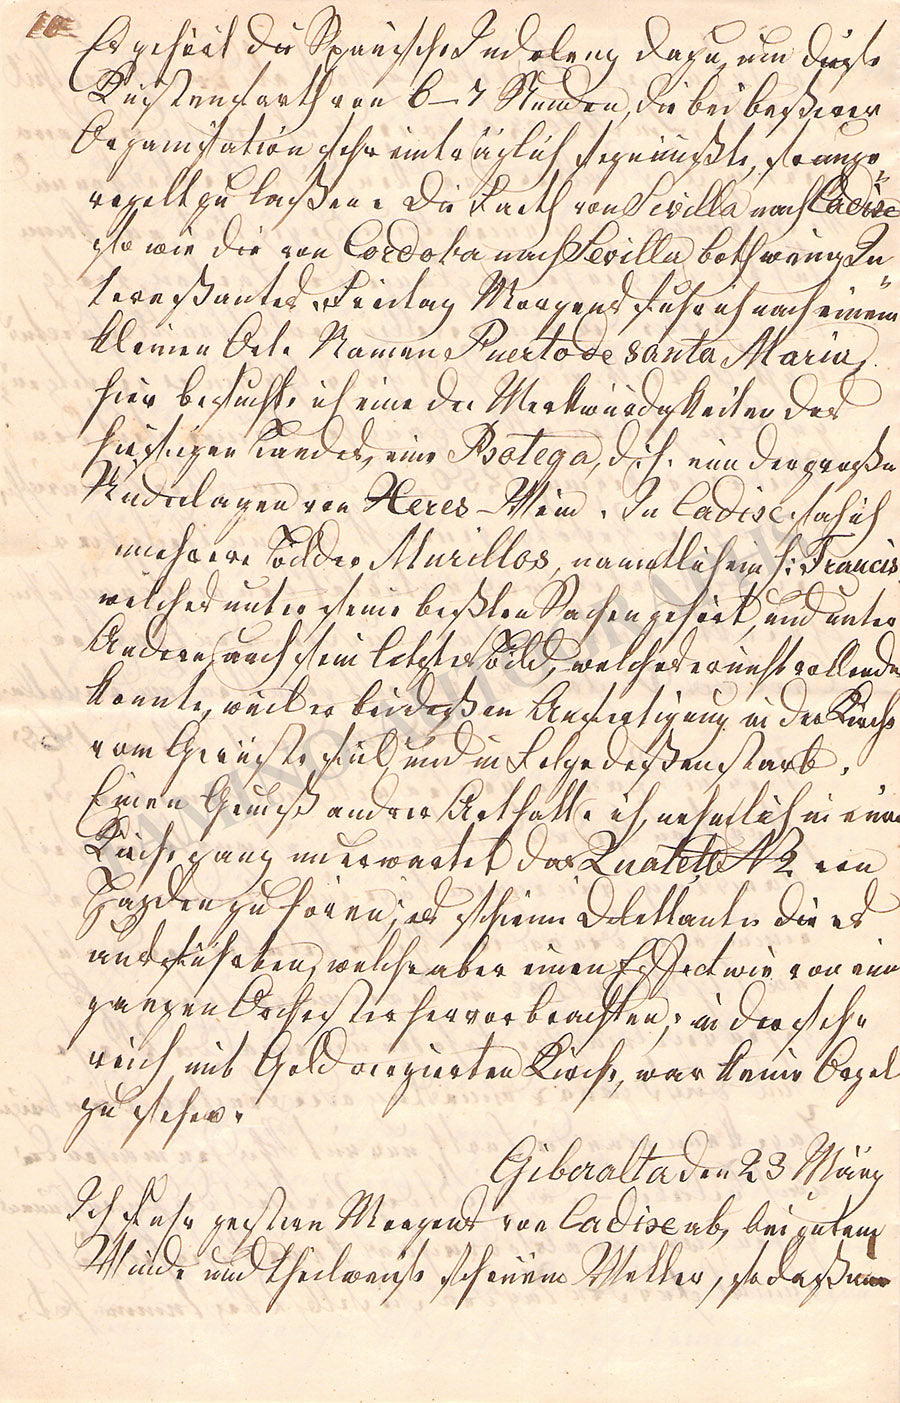 10
Es gehört die Spanische Indolenz dazu, um diese
Küstenfarth von 6–7 Stunden, die bei beßerer
Organisation sehr einträglich seyn müßte, so unge-
regelt zu laßen. Die Farth von Sevilla nach Cadixe
so wie die von Cordoba nach Sevilla both wenig In-
tereßantes. Freitag Morgens fuhr ich nach einem
kleinen Ort Namens Puerto de Santa Maria,
hier besuchte ich eine der Merkwürdigkeiten des
hiesigen Landes, eine Botega, d. h. eine der großen
Niederlagen von Xeres-Wein. In Cadixe sah ich
mehrere Bilder Murillos, namtlich ein h: Francis
welches unter seine beßten Sachen gehört, und unter
Andern auch sein letztes Bild, welches er nicht vollenden
konnte, weil er bei deßen Anfertigung in der Kirche
vom Gerüste fiel, und in Folge deßen starb.
Einen Genuß andrer Art hatte ich, nehmlich in einer
Kirche ganz unerwartet das Quatett N 2 von
Haydn zu hören; es schienen Dilettanten die es
ausführten, welche aber einen Effect wie von einem
ganzen Orchester hervorbrachten; in der sehr
reich mit Gold verzierten Kirche, war keine Orgel
zu sehen.
Gibralta den 23 März
Ich fuhr gestern Morgens von Cadixe ab, bei gutem
Winde und theilweise schönem Wetter, so daß